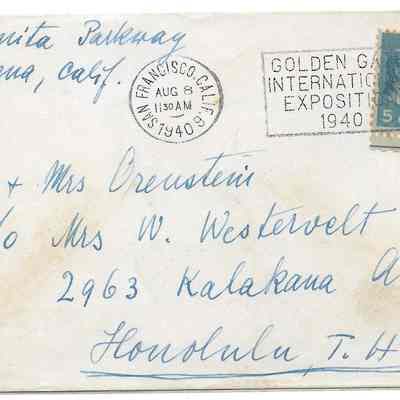 nita Parkway
ena, Calif.
SAN FRANCISCO, CALIF. 9
AUG 8
11 30 AM
1940
GOLDEN GA
INTERNATION
EXPOSITI
1940
5
& Mrs Orenstein
/o Mrs W. Westervelt
2963 Kalakana A
Honolulu, T. H